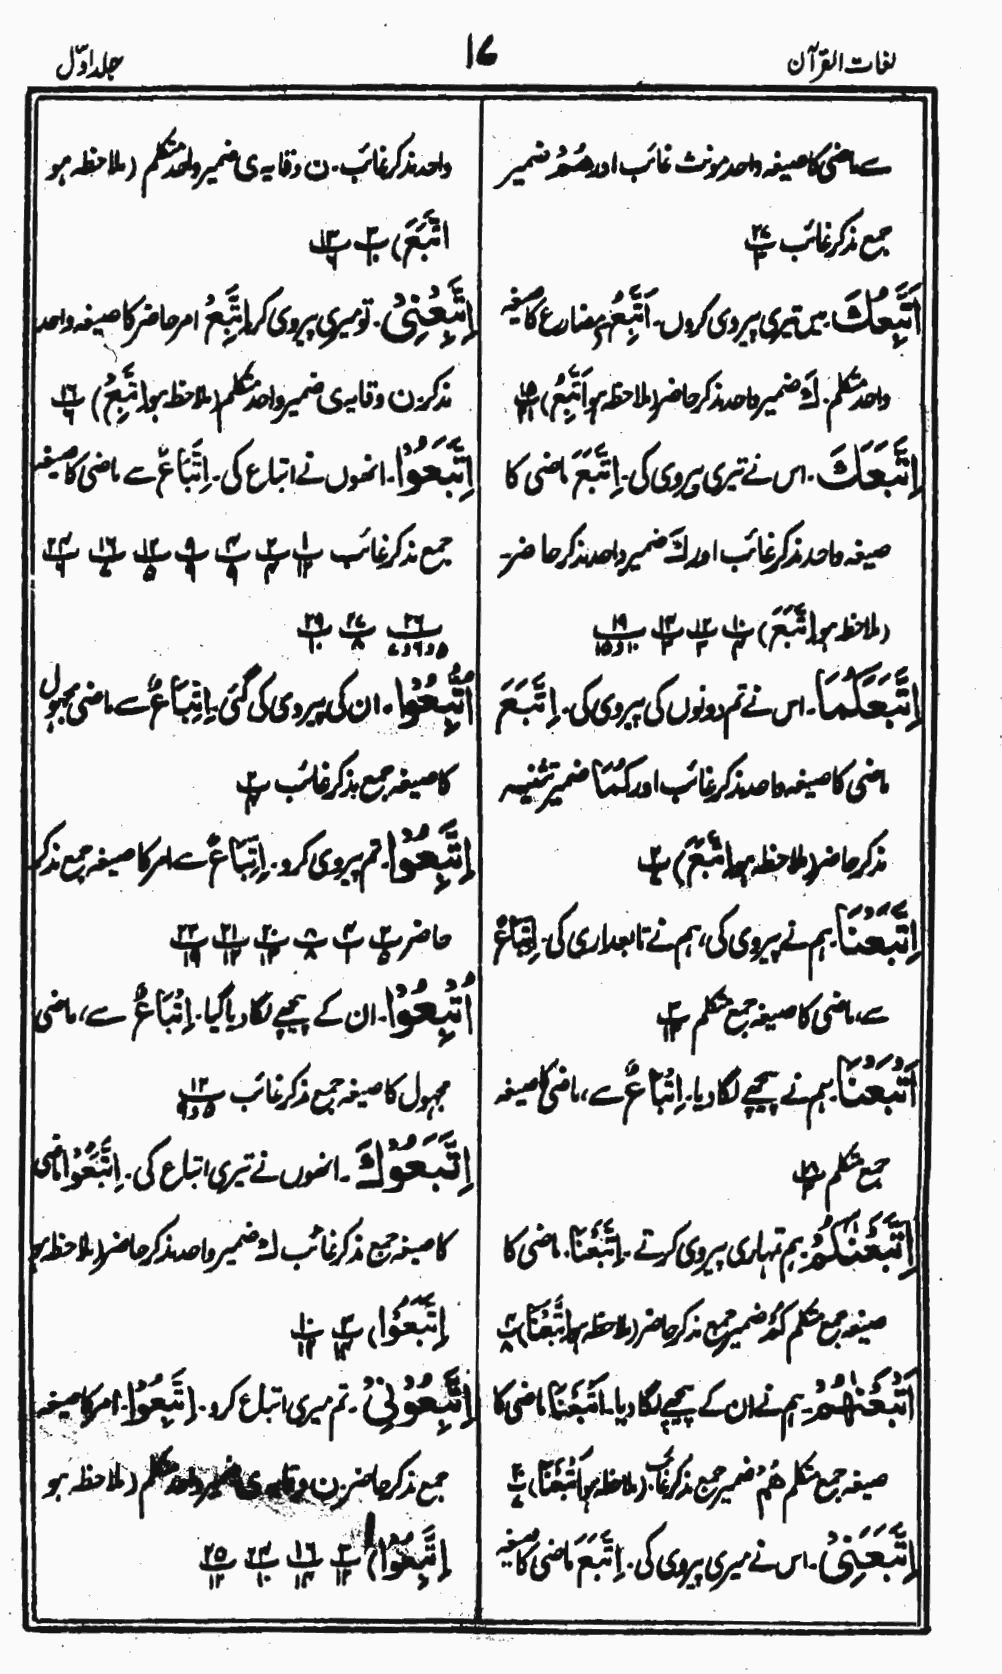 لغات القرآن
۱۷
جلد اوّل
سے ماضی کا صیغہ واحد مونث غائب اور هُمْ ضمیر
جمع مذکر غائب ۲۷/۳
اَتَّبِعُكَ۔ میں تیری پیروی کروں۔ اَتَّبِعُ مضارع کا صیغہ
واحد متکلم۔ كَ ضمیر واحد مذکر حاضر (ملاحظہ ہو اَتَّبِعُ) ۱۵/۲۱
اِتَّبَعَكَ۔ اس نے تیری پیروی کی۔ اِتَّبَعَ ماضی کا
صیغہ واحد مذکر غائب اور كَ ضمیر واحد مذکر حاضر۔
(ملاحظہ ہو اِتَّبَعَ) ۱۰/۴ ۱۲/۳ ۱۴/۳ ۱۹/۱۰و۱۵
اِتَّبَعَكُمَا۔ اس نے تم دونوں کی پیروی کی۔ اِتَّبَعَ
ماضی کا صیغہ واحد مذکر غائب اور كُمَا ضمیر تثنیہ
مذکر حاضر (ملاحظہ ہو اِتَّبَعَ)
اِتَّبَعْنَا۔ ہم نے پیروی کی، ہم نے تابعداری کی۔ اِتِّبَاعٌ
سے، ماضی کا صیغہ جمع متکلم ۳/۱۴
اَتْبَعْنَا۔ ہم نے پیچھے لگا دیا۔ اِتْبَاعٌ سے، ماضی کا صیغہ
جمع متکلم
اِتَّبَعْنٰكُمْ۔ ہم تمہاری پیروی کرتے۔ اِتَّبَعْنَا۔ ماضی کا
صیغہ جمع متکلم كُمْ ضمیر جمع مذکر حاضر (ملاحظہ ہو اِتَّبَعْنَا) ۴/۸
اَتْبَعْنٰهُمْ۔ ہم نے ان کے پیچھے لگا دیا۔ اَتْبَعْنَا ماضی کا
صیغہ جمع متکلم هُمْ ضمیر جمع مذکر غائب۔ (ملاحظہ ہو اَتْبَعْنَا)
اِتَّبَعَنِیْ۔ اس نے میری پیروی کی۔ اِتَّبَعَ ماضی کا صیغہ
واحد مذکر غائب۔ ن وقایہ ی ضمیر واحد متکلم (ملاحظہ ہو
اتَّبَعَ) ۳/۱۰ ۱۳/۶
اِتَّبِعْنِیْ۔ تو میری پیروی کر اِتَّبِعْ امر حاضر کا صیغہ واحد
مذکر ن وقایہ ی ضمیر واحد متکلم (ملاحظہ ہو اِتَّبِعْ) ۱۶/۶
اِتَّبَعُوْا۔ انھوں نے اتباع کی۔ اِتِّبَاعٌ سے ماضی کا صیغہ
جمع مذکر غائب ۱/۱۲ ۲/۴ ۴/۹ ۹/۹ ۱۲/۵ ۱۶/۷
۲۶/۵و۶و۷ ۲۷/۸ ۲۹/۱۰
اُتُّبِعُوْا۔ ان کی پیروی کی گئی۔ اِتِّبَاعٌ سے ماضی مجہول
کا صیغہ جمع مذکر غائب ۲/۴
اِتَّبِعُوْا۔ تم پیروی کرو۔ اِتِّبَاعٌ سے امر کا صیغہ جمع مذکر
حاضر ۲/۵ ۴/۱ ۸/۸ ۲۰/۱۴ ۲۱/۱۲ ۲۲/۱۹
اُتْبِعُوْا۔ ان کے پیچھے لگا دیا گیا۔ اِتْبَاعٌ سے، ماضی
مجہول کا صیغہ جمع مذکر غائب ۱۲/۵و۹
اِتَّبَعُوْكَ۔ انھوں نے تیری اتباع کی۔ اِتَّبَعُوْا ماضی
کا صیغہ جمع مذکر غائب كَ ضمیر واحد مذکر حاضر (ملاحظہ ہو
اِتَّبَعُوْا) ۳/۱۴ ۱۰/۱۳
اِتَّبِعُوْنِیْ۔ تم میری اتباع کرو۔ اِتَّبِعُوْا امر کا صیغہ
جمع مذکر حاضر ن وقایہ ی ضمیر واحد متکلم (ملاحظہ ہو
اِتَّبِعُوْا) ۳/۱۲ ۱۶/۱۴ ۲۴/۱۰ ۲۵/۱۲